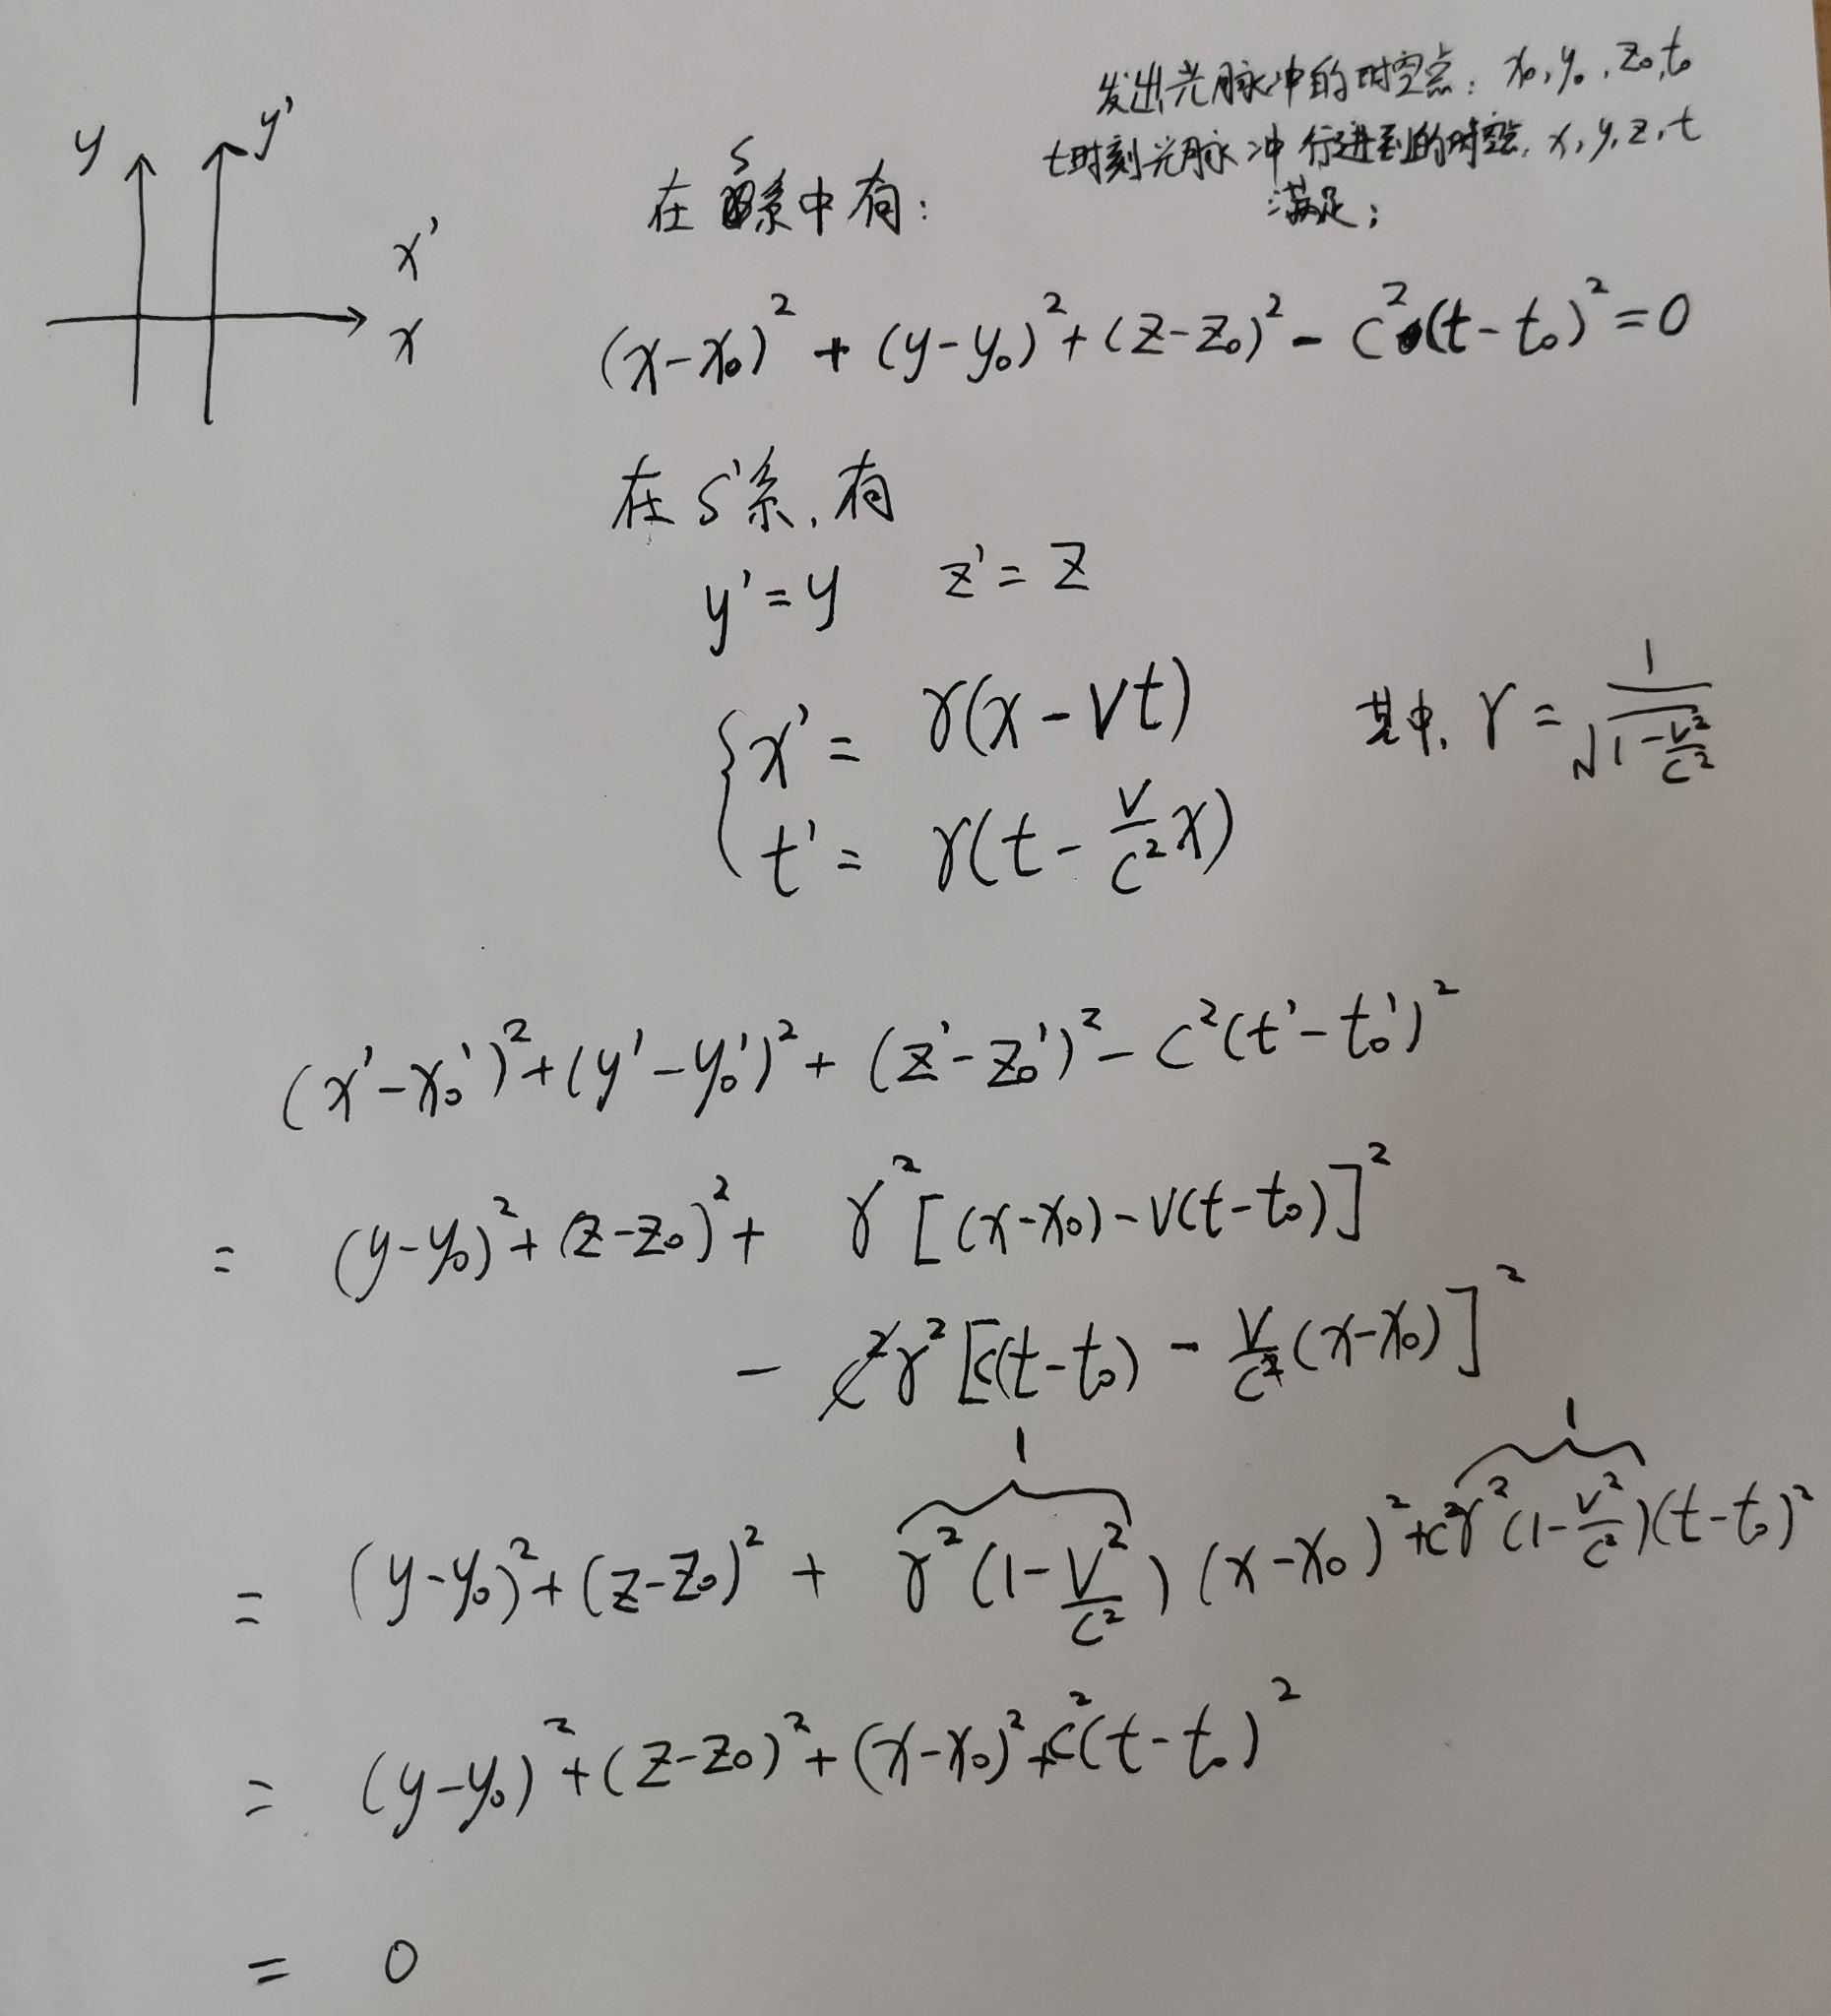 发出光脉冲的时空点: x₀, y₀, z₀, t₀
t时刻光脉冲行进到的时空点, x, y, z, t
满足:
y y'
x'
x
在S系中有:
(x-x₀)² + (y-y₀)² + (z-z₀)² - c²(t-t₀)² = 0
在S'系, 有
y' = y z' = z
{ x' = γ(x - vt) 其中, γ = 1/√(1 - v²/c²)
t' = γ(t - v/c² x)
(x'-x₀')² + (y'-y₀')² + (z'-z₀')² - c²(t'-t₀')²
= (y-y₀)² + (z-z₀)² + γ²[(x-x₀) - v(t-t₀)]²
- γ²[c(t-t₀) - v/c (x-x₀)]²
1 1
= (y-y₀)² + (z-z₀)² + γ²(1 - v²/c²)(x-x₀)² + c²γ²(1 - v²/c²)(t-t₀)²
= (y-y₀)² + (z-z₀)² + (x-x₀)² + c²(t-t₀)²
= 0